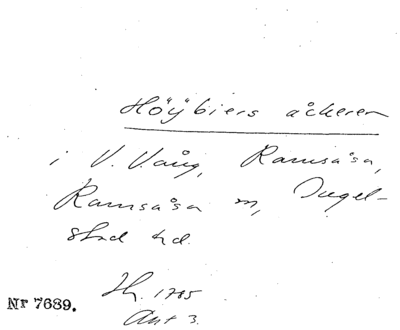 Höÿbiers åckeren
i V. Vång, Ramsåsa,
Ramsåsa sn, Ingel-
stad hd.
Lh. 1785
Akt 3.
Nr 7689.